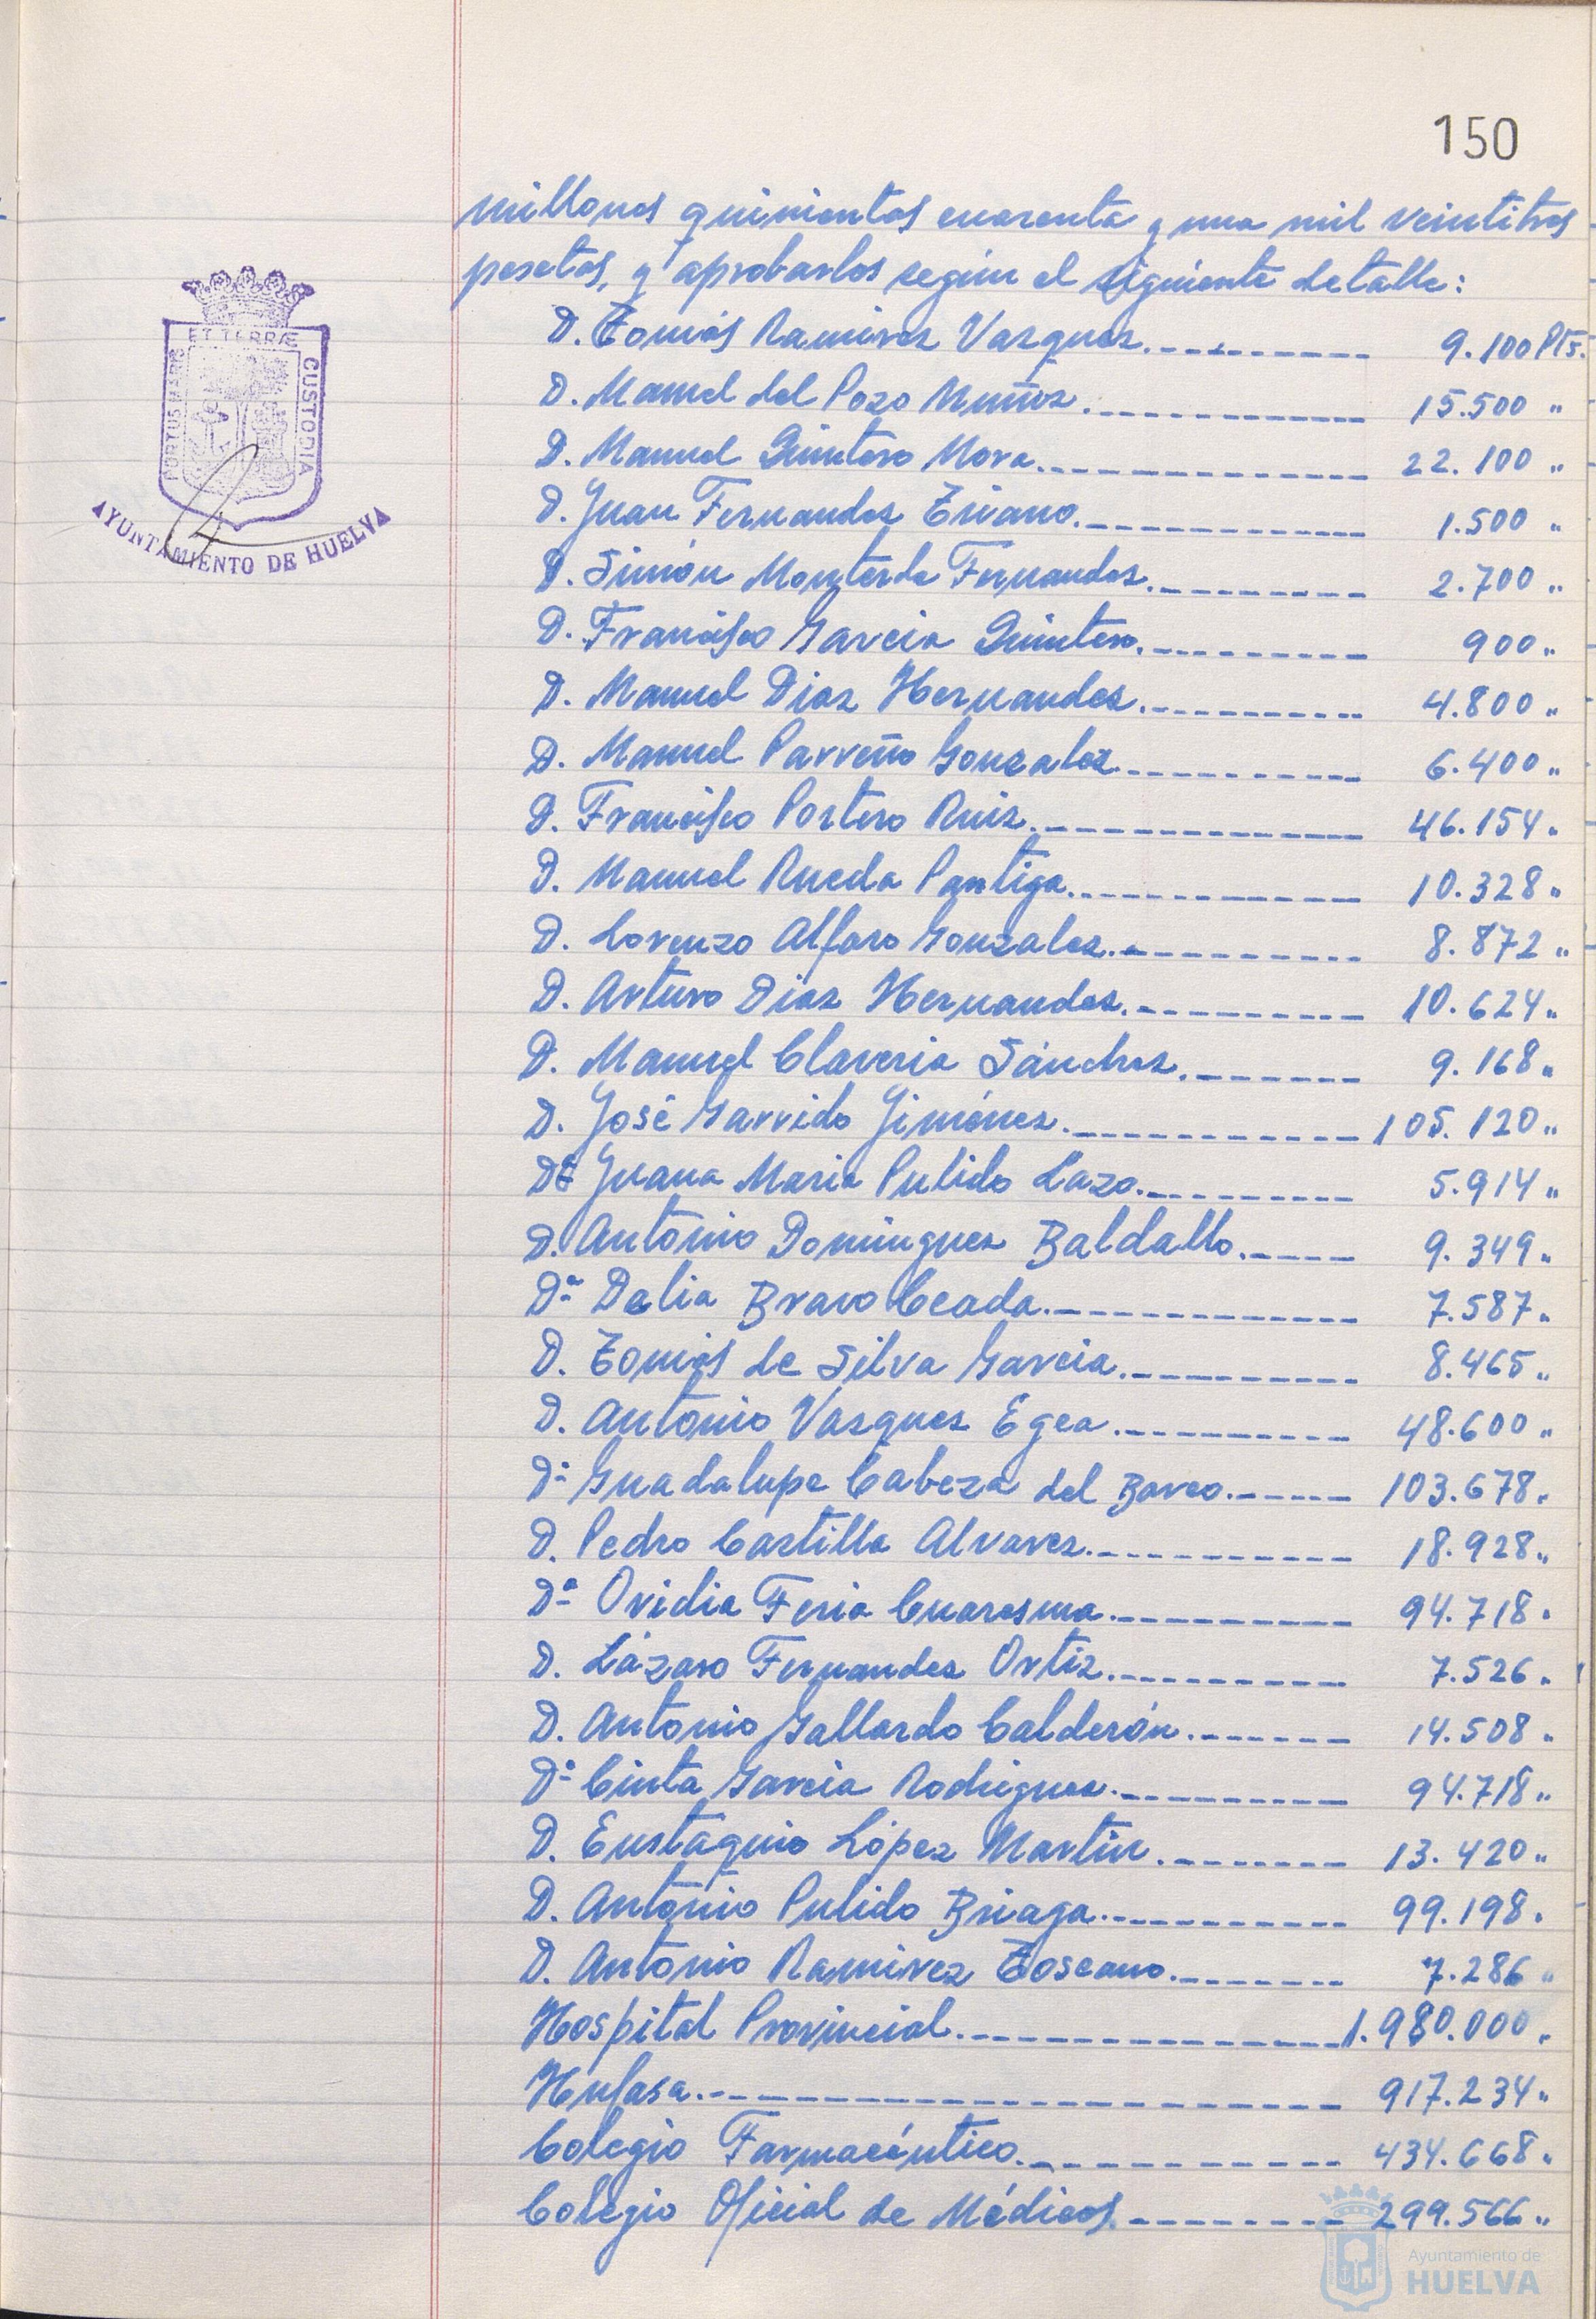 150
millones quinientas cuarenta y una mil veintitres
pesetas, y aprobarlos según el siguiente detalle:
D. Tomás Ramirez Vazquez.---------- 9.100 Pts.
D. Manuel del Pozo Muñoz.---------- 15.500 "
D. Manuel Quintero Mora.---------- 22.100 "
D. Juan Fernandez .---------- 1.500 "
D. Simón Monterde Fernandez.--------- 2.700 "
D. Francisco Garcia Quintero.--------- 900 "
D. Manuel Diaz Hernandez.---------- 4.800 "
D. Manuel Parreño Gonzalez.---------- 6.400 "
D. Francisco Portero Ruiz.---------- 46.154 "
D. Manuel Rueda Pantiga.---------- 10.328 "
D. Lorenzo Alfaro Gonzalez.---------- 8.872 "
D. Arturo Diaz Hernandez.---------- 10.624 "
D. Manuel Claveria Sánchez.------- 9.168 "
D. José Garrido Jiménez.---------- 105.120 "
Dª Juana Maria Pulido Lazo.---------- 5.914 "
D. Antonio Dominguez Baldallo.----- 9.349 "
Dª Delia Bravo Ceada.---------- 7.587 "
D. Tomás de Silva Garcia.---------- 8.465 "
D. Antonio Vazquez Egea.---------- 48.600 "
Dª Guadalupe Cabeza del Barco.------ 103.678 "
D. Pedro Castilla Alvarez.---------- 18.928 "
Dª Ovidia Feria Cuaresma.---------- 94.718 "
D. Lázaro Fernandez Ortiz.---------- 7.526 "
D. Antonio Gallardo Calderón.------- 14.508 "
Dª Cinta Garcia Rodriguez.---------- 94.718 "
D. Eustaquio López Martin.-------- 13.420 "
D. Antonio Pulido Briaga.---------- 99.198 "
D. Antonio Ramirez Toscano.-------- 7.286 "
Hospital Provincial.---------------- 1.980.000 "
Hufasa.---------------------- 917.234 "
Colegio Farmacéutico.----------- 434.668 "
Colegio Oficial de Médicos.-------- 299.566 "
PORTUS MARIS
ET TERRÆ
CUSTODIA
AYUNTAMIENTO DE HUELVA
Ayuntamiento de
HUELVA